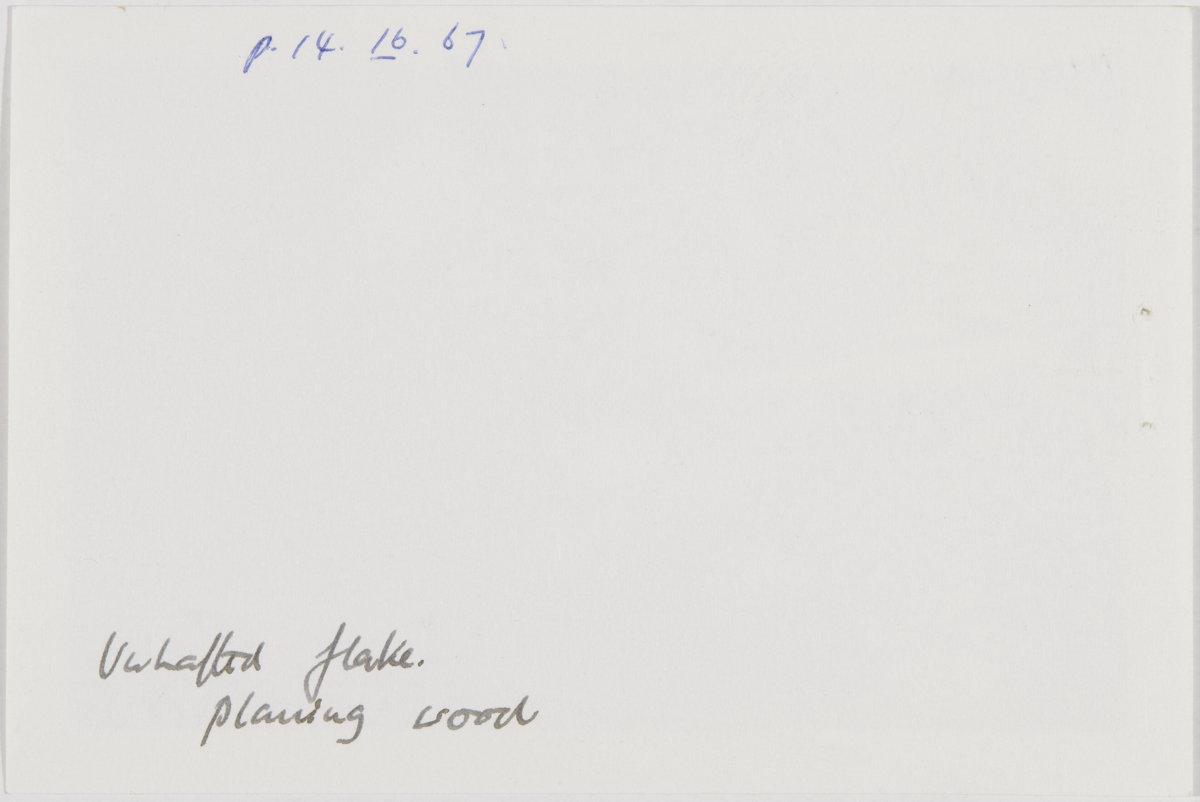 p. 14. 16. 67
Unhafted flake.
planing wood